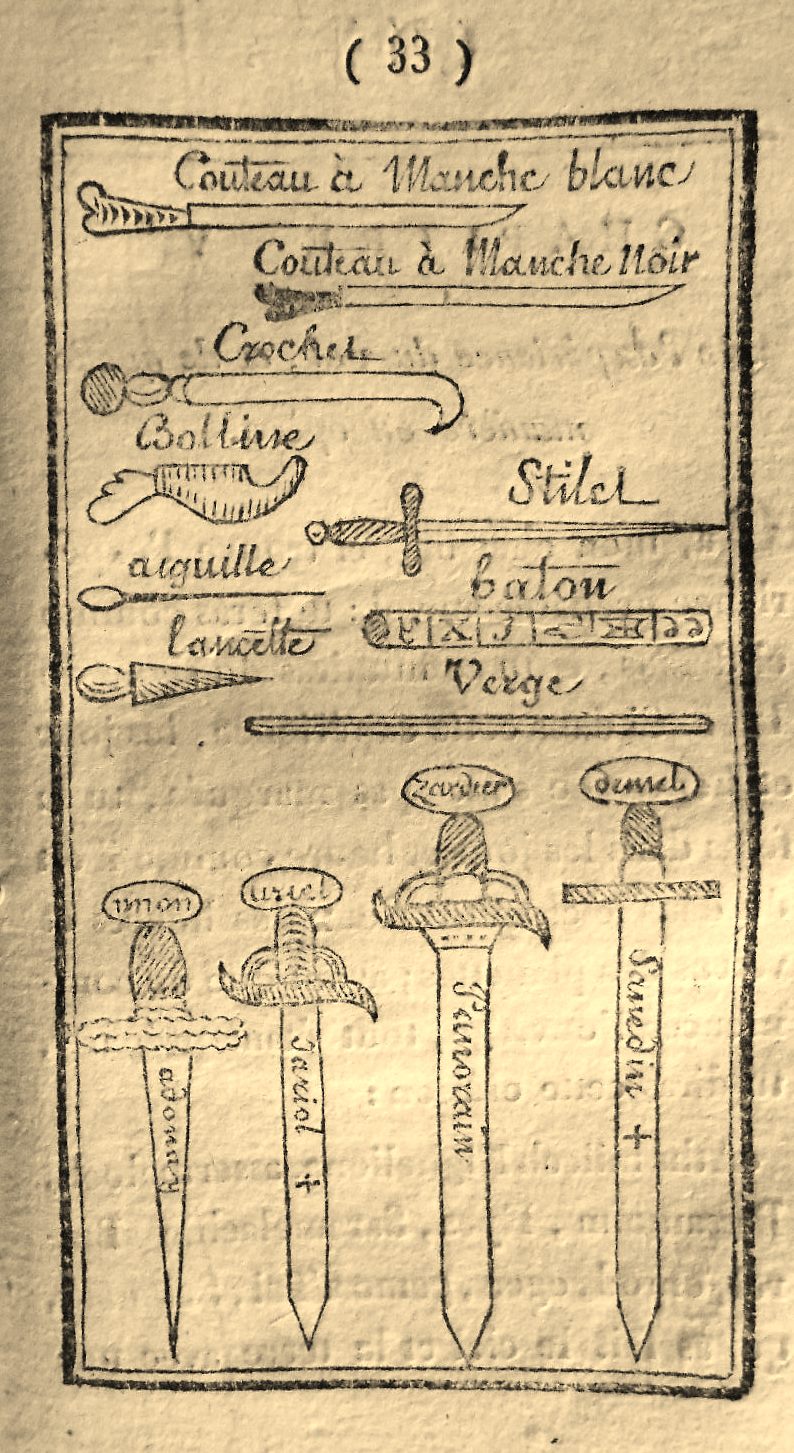 ( 33 )
Couteau à Manche blanc
Couteau à Manche Noir
Crochet
Bolline
Stilet
aiguille
baton
lancette
Verge
zardier
demel
uriel
adonay
Jariol +
Pamorain
Sanedin +